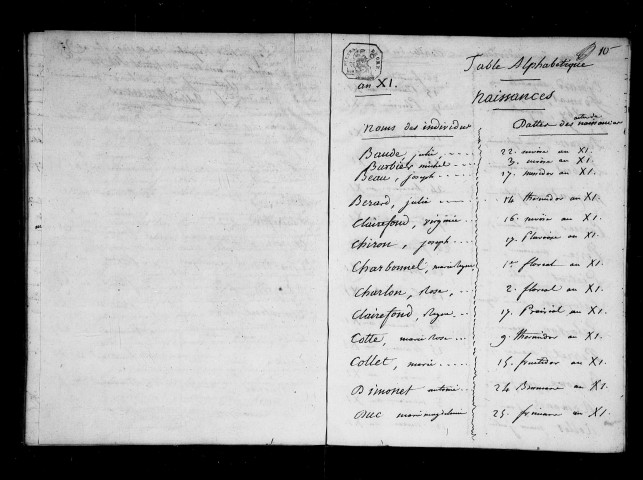 10
Table Alphabétique
an XI.
Naissances
Noms des individus Dattes des actes de naissances
Baude, julie, 22. nivôse an XI.
Barbier, michel 3. nivôse an XI.
Beau, joseph 17. messidor an XI.
Berard, julie 14 thermidor an XI.
Clairefond, virginie 16. nivôse an XI.
Chiron, joseph 17. Pluviôse an XI.
Charbonnel, marie 1er floreal an XI.
Charlon, Rose, 2. floreal an XI.
Clairefond, 17. Prairial an XI.
Cotte, marie Rose 9. thermidor an XI.
Collet, marie 15. fructidor an XI.
Dimonet antoine 24 Brumaire an XI.
Duc marie magdelaine 25. frimaire an XI.